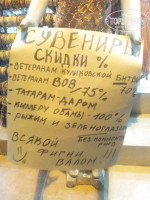 СУВЕНИРЫ
СКИДКИ %
- ВЕТЕРАНАМ КУЛИКОВСКОЙ БИТВЫ
- ВЕТЕРАНАМ ВОВ - 75%
- ТАТАРАМ ДАРОМ
- КИЛЛЕРУ ОБАМЫ - 100%
- РЫЖИМ И ЗЕЛЕНОГЛАЗЫМ
ВСЯКОЙ
ФИГНИ
ВАЛОМ !!!